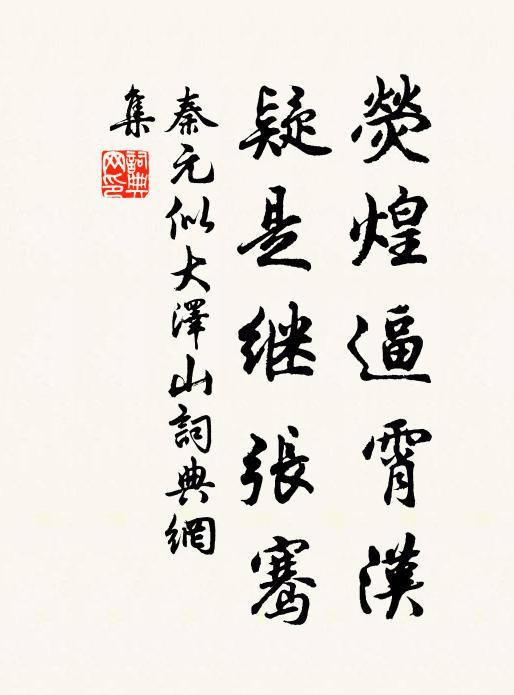 熒煌逼霄漢
疑是继張骞
秦元似大澤山詞典網
集
詞典
网印